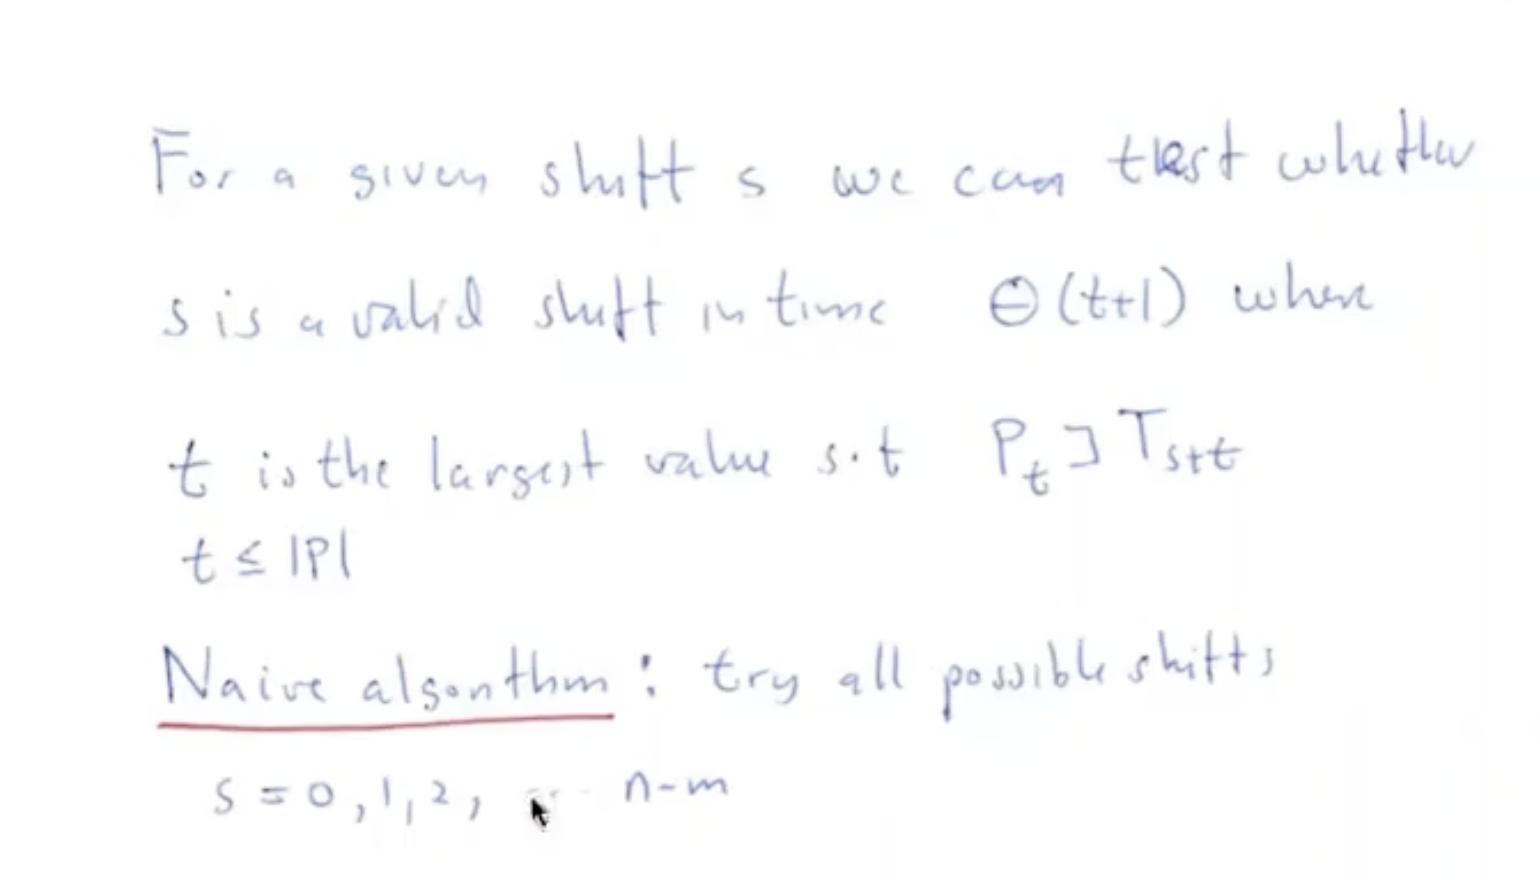 For a given shift s we can test whether
s is a valid shift in time Θ(t+1) where
t is the largest value s.t P_t ⊐ T_s+t
t ≤ |P|
Naive algorithm : try all possible shifts
s = 0, 1, 2, ... n-m